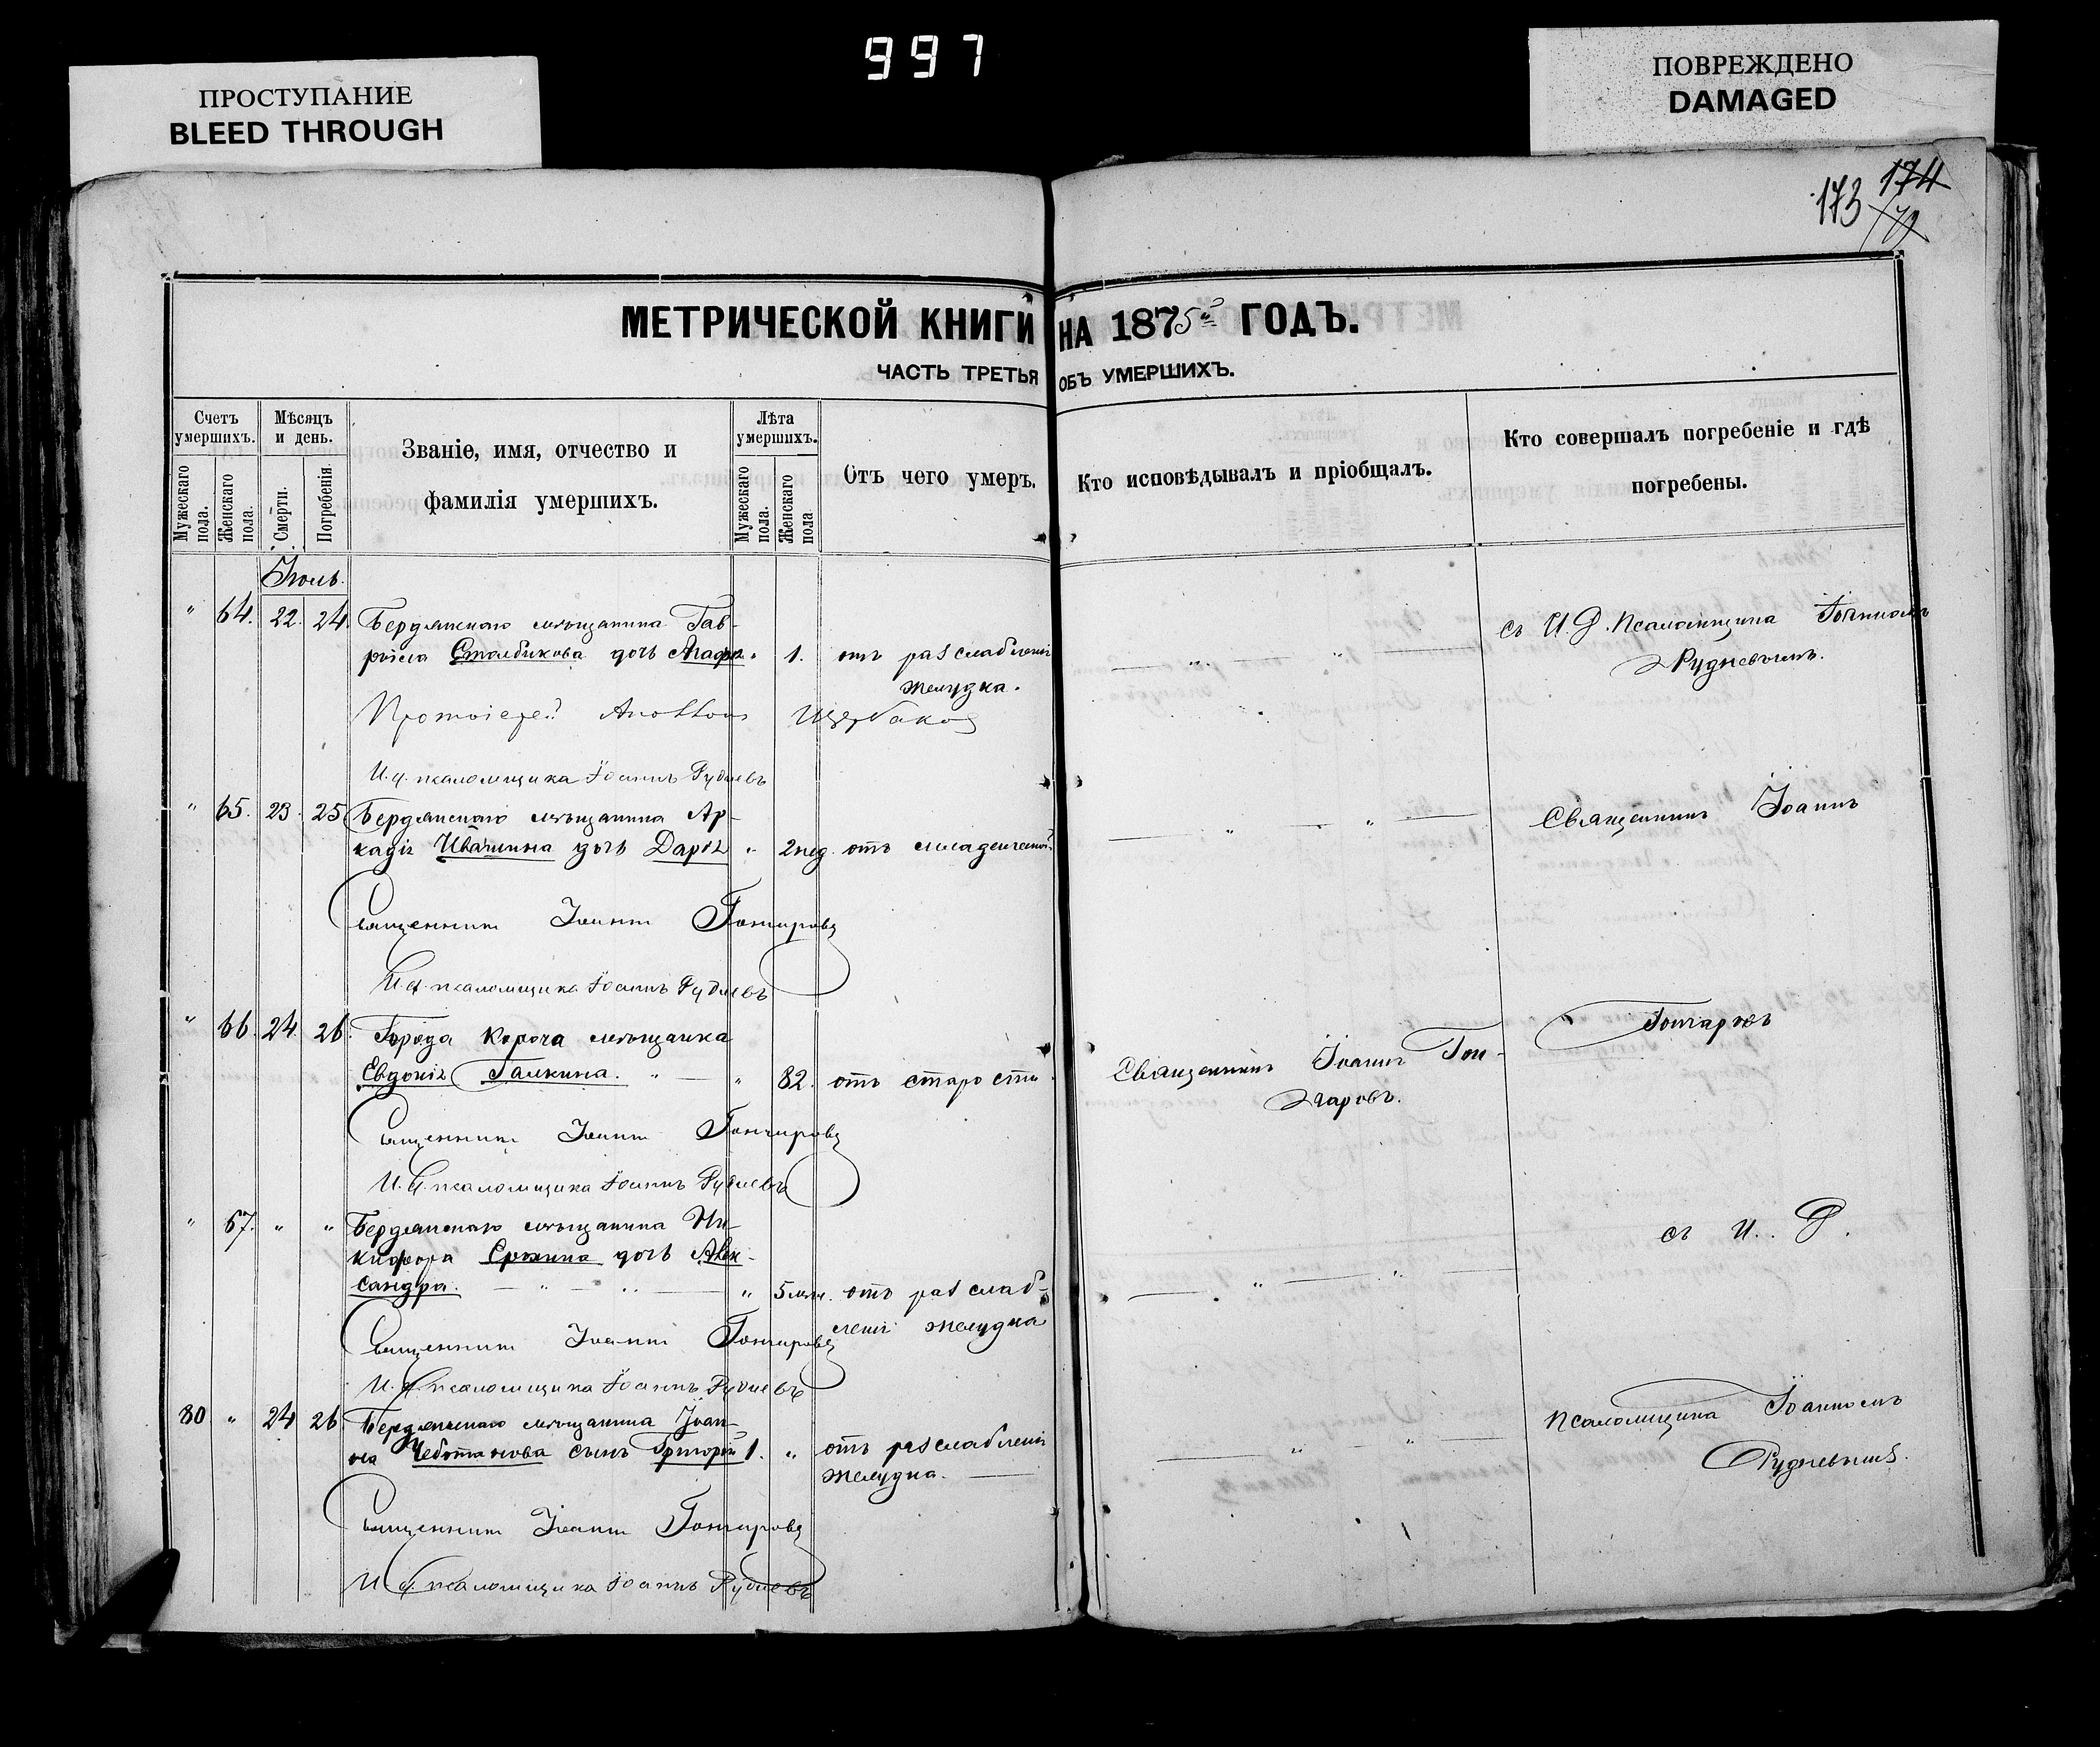 997
ПРОСТУПАНИЕ
BLEED THROUGH
ПОВРЕЖДЕНО
DAMAGED
174
173
МЕТРИЧЕСКОЙ КНИГИ НА 1875 ГОДЪ.
ЧАСТЬ ТРЕТЬЯ ОБЪ УМЕРШИХЪ.
Счетъ умершихъ.
Мужескаго пола.
Женскаго пола.
Мѣсяцъ и день.
Смерти.
Погребенія.
Званіе, имя, отчество и
фамилія умершихъ.
Лѣта умершихъ.
Мужескаго пола.
Женскаго пола
Отъ чего умеръ.
Кто исповѣдывалъ и пріобщалъ.
Кто совершалъ погребеніе и гдѣ
погребены.
" 64. 22. 24. Бердянскаго мѣщанина Гав-
ріила Столбикова дочь " 1. отъ разслабленія
желудка.
съ И. Д. Псаломщика Іоанномъ
Рудневымъ.
Протоіерей Щербаковъ
И. д. псаломщика Іоаннъ Рудневъ
" 65. 23. 25. Бердянскаго мѣщанина Ар-
кадія Ивашина дочь Дарія " 2 нед. отъ младенческой
Священникъ Іоаннъ
Священникъ Іоаннъ Гончаровъ
И. д. псаломщика Іоаннъ Рудневъ
" 66. 24. 26. Города Короча мѣщанка
Евдокія Галкина. " " 82. отъ старости
Священникъ Іоаннъ Гон-
чаровъ.
Гончаровъ
Священникъ Іоаннъ Гончаровъ
И. д. псаломщика Іоаннъ Рудневъ
" 67. " " Бердянскаго мѣщанина Ни-
кифора дочь Алек-
сандра. " 5 отъ разслаб-
ленія желудка
съ И. Д.
Священникъ Іоаннъ Гончаровъ
И. д. псаломщика Іоаннъ Рудневъ
80 " 24 26 Бердянскаго мѣщанина Іоан-
на сынъ Григорій 1. " отъ разслабленія
желудка.
Псаломщика Іоанномъ
Рудневымъ.
Священникъ Іоаннъ Гончаровъ
И. д. псаломщика Іоаннъ Рудневъ